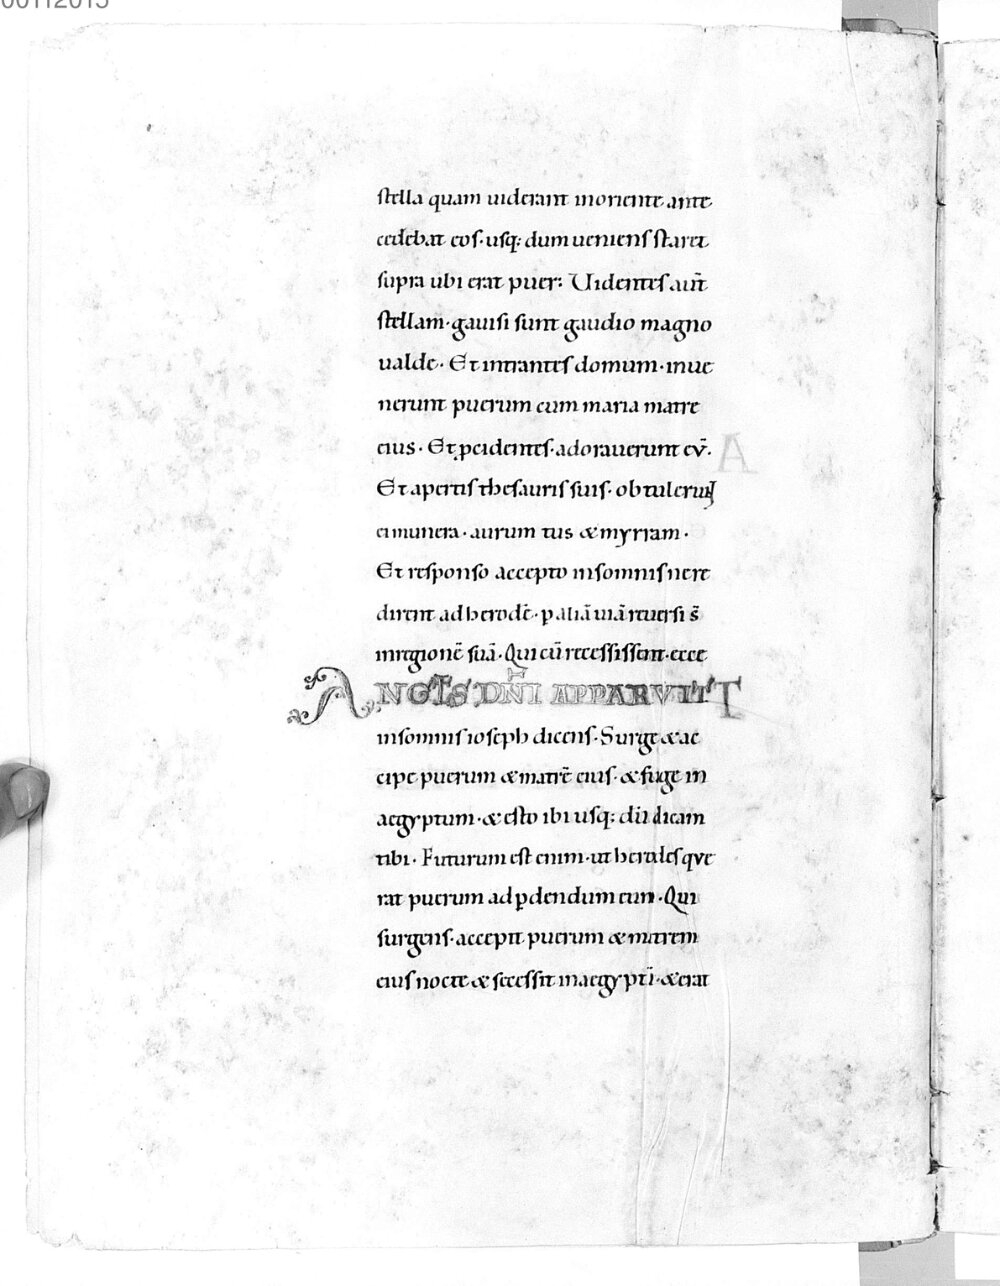 00112015
stella quam uiderant inoriente ante
cedebat eos. usq; dum ueniens staret
supra ubi erat puer: Uidentes aut̄
stellam. gauisi sunt gaudio magno
ualde. Et intrantes domum. inue
nerunt puerum cum maria matre
eius. Et p̱cidentes. adorauerunt ev̄.
Et apertis thesauris suis. obtulerunt
ei munera. aurum tus & myrram.
Et responso accepto insomnis nere
dirent ad herodē. p̱ aliā uiā reuersi s̄
inregionē suā. Qui cū recessissent. ecce
ANGĪS DN̄I APPARVIT
insomnis ioseph dicens. Surge & ac
cipe puerum & matrē eius. & fuge in
aegyptum. & esto ibi usq; dū dicam
tibi. Futurum est enim. ut herodes que
rat puerum ad p̱dendum eum. Qui
surgens. accepit puerum & matrem
eius nocte & secessit in aegyptū. & erat